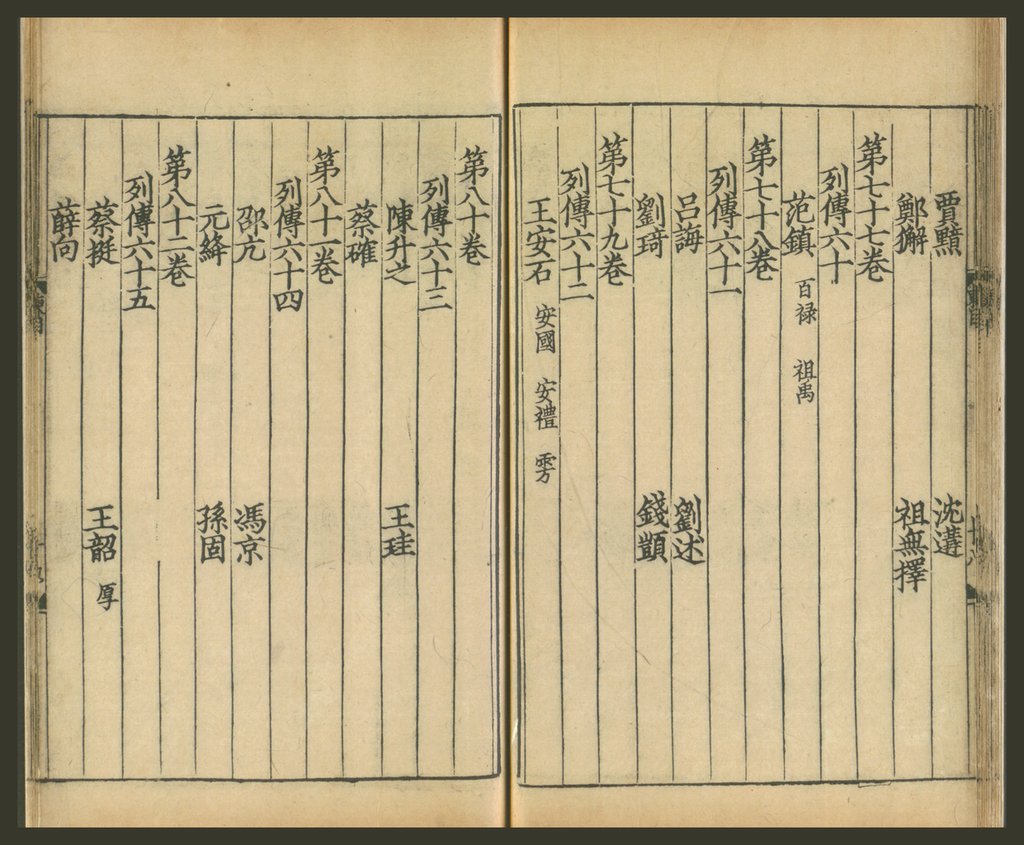 賈黯 沈遘
鄭獬 祖無擇
第七十七卷
列傳六十
范鎮 百禄 祖禹
第七十八卷
列傳六十一
呂誨 劉述
劉琦 錢顗
第七十九卷
列傳六十二
王安石 安國 安禮 雱
第八十卷
列傳六十三
陳升之 王珪
蔡確
第八十一卷
列傳六十四
邵亢 馮京
元絳 孫固
第八十二卷
列傳六十五
蔡挺 王韶 厚
薛向